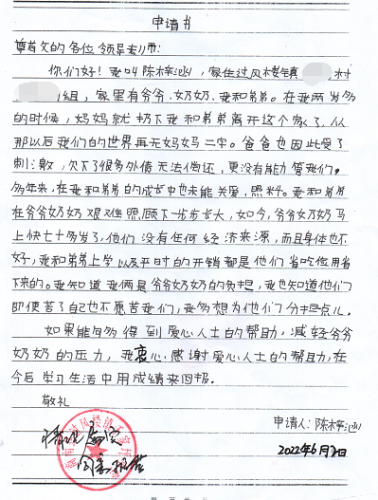 申请书
尊敬的各位领导老师:
你们好!我叫陈梓涵,家住过风楼镇 村
组,家里有爷爷、奶奶、我和弟弟。在我两岁多
的时候,妈妈就扔下我和弟弟离开这个家了,从
那以后我们的世界再无妈妈二字。爸爸也因此受了
刺激,欠下了很多外债无法偿还,更没有能力管我们。
多年来,在我和弟弟的成长中也未能关爱、照料。我和弟弟
在爷爷奶奶艰难照顾下一步步长大,如今,爷爷奶奶马
上快七十多岁了,他们没有任何经济来源,而且身体也不
好,我和弟弟上学以及平时的开销都是他们省吃俭用省
下来的。我知道我俩是爷爷奶奶的负担,我也知道他们
即使苦了自己也不愿苦我们,我多想为他们分担点儿。
如果能够得到爱心人士的帮助,减轻爷爷
奶奶的压力,我衷心感谢爱心人士的帮助,在
今后学习生活中用成绩来回报。
敬礼
情况属实
申请人:陈梓涵
2022年6月2日